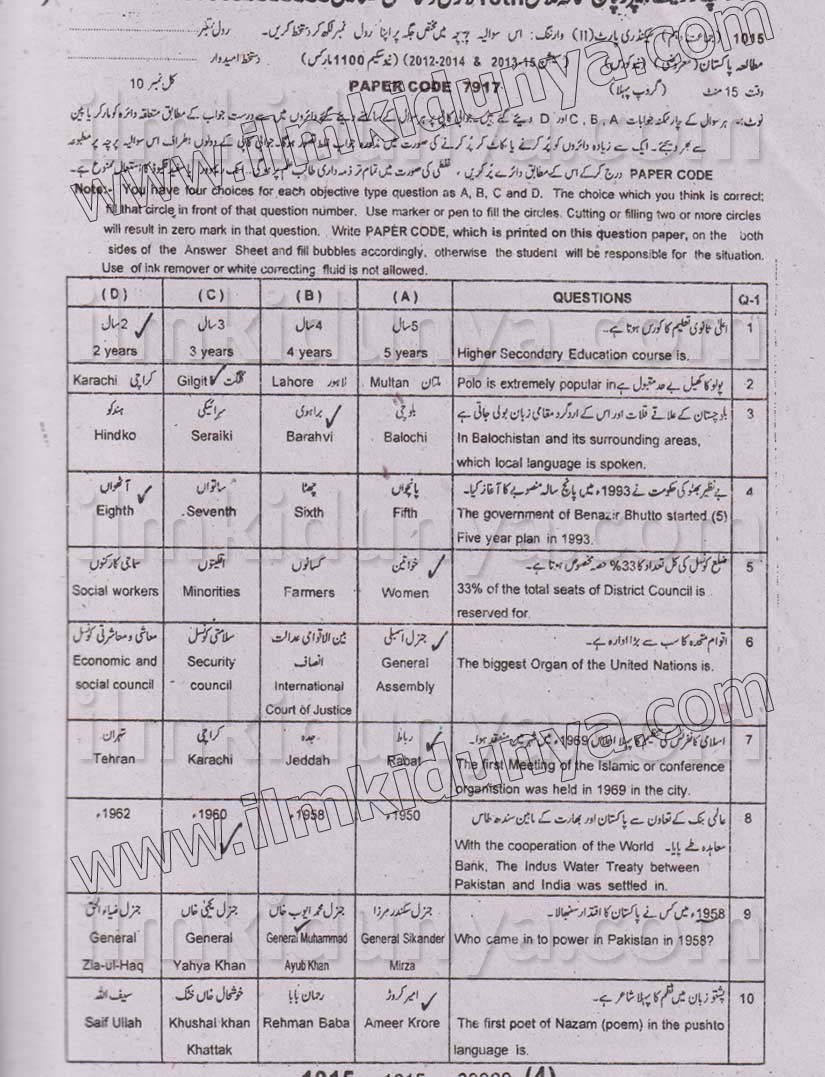 1015 (جماعت دہم) سیکنڈری پارٹ (II) وارننگ: اس سوالیہ پرچہ میں مختص جگہ پر اپنا رول نمبر لکھ کر دستخط کریں۔ رول نمبر
مطالعہ پاکستان (معروضی) (نیو کورس) (سیشن 15-2013 & 2014-2012) (نیو سکیم 1100 مارکس) دستخط امیدوار
وقت 15 منٹ (گروپ پہلا) PAPER CODE 7917 کل نمبر 10
نوٹ:۔ ہر سوال کے چار ممکنہ جوابات C , B , A اور D دیئے گئے ہیں۔ جوابی کاپی پر ہر سوال کے سامنے دیئے گئے دائروں میں سے درست جواب کے مطابق متعلقہ دائرہ کو مارکر یا پین
سے بھر دیجئے۔ ایک سے زیادہ دائروں کو پُر کرنے یا کاٹ کر پُر کرنے کی صورت میں مذکورہ جواب غلط تصور ہوگا۔ جوابی کاپی کے دونوں اطراف اس سوالیہ پرچہ پر مطبوعہ
PAPER CODE درج کر کے اس کے مطابق دائرے پُر کریں، غلطی کی صورت میں تمام تر ذمہ داری طالب علم پر ہوگی۔ استعمال ممنوع ہے۔
Note:- You have four choices for each objective type question as A, B, C and D. The choice which you think is correct;
fill that circle in front of that question number. Use marker or pen to fill the circles. Cutting or filling two or more circles
will result in zero mark in that question. Write PAPER CODE, which is printed on this question paper, on the both
sides of the Answer Sheet and fill bubbles accordingly, otherwise the student will be responsible for the situation.
Use of ink remover or white correcting fluid is not allowed.
(D) (C) (B) (A) QUESTIONS Q-1
2 سال 3 سال 4 سال 5 سال اعلیٰ ثانوی تعلیم کا کورس ہوتا ہے۔ 1
2 years 3 years 4 years 5 years Higher Secondary Education course is.
Karachi کراچی Gilgit گلگت Lahore لاہور Multan ملتان Polo is extremely popular in پولو کا کھیل بے حد مقبول ہے 2
ہندکو سرائیکی براہوی بلوچی بلوچستان کے علاقے قلات اور اس کے اردگرد مقامی زبان بولی جاتی ہے 3
Hindko Seraiki Barahvi Balochi In Balochistan and its surrounding areas,
which local language is spoken.
آٹھواں ساتواں چھٹا پانچواں بے نظیر بھٹو کی حکومت نے 1993ء میں پانچ سالہ منصوبے کا آغاز کیا۔ 4
Eighth Seventh Sixth Fifth The government of Benazir Bhutto started (5)
Five year plan in 1993.
سماجی کارکنوں اقلیتوں کسانوں خواتین ضلع کونسل کی کل تعداد کا 33% حصہ مخصوص ہوتا ہے۔ 5
Social workers Minorities Farmers Women 33% of the total seats of District Council is
reserved for.
معاشی و معاشرتی کونسل سلامتی کونسل بین الاقوامی عدالت جنرل اسمبلی اقوام متحدہ کا سب سے بڑا ادارہ ہے۔ 6
انصاف
Economic and Security General The biggest Organ of the United Nations is.
social council council International Assembly
Court of Justice
تہران کراچی جدہ رباط اسلامی کانفرنس کی تنظیم کا پہلا اجلاس 1969ء میں شہر میں منعقد ہوا۔ 7
Tehran Karachi Jeddah Rabat The first Meeting of the Islamic or conference
organistion was held in 1969 in the city.
1962ء 1960ء 1958ء 1950ء عالمی بنک کے تعاون سے پاکستان اور بھارت کے مابین سندھ طاس 8
معاہدہ طے پایا۔ With the cooperation of the World
Bank, The Indus Water Treaty between
Pakistan and India was settled in.
جنرل ضیاء الحق جنرل یحییٰ خاں جنرل محمد ایوب خاں جنرل سکندر مرزا 1958ء میں کس نے پاکستان کا اقتدار سنبھالا۔ 9
General General General Muhammad General Sikander Who came in to power in Pakistan in 1958?
Zia-ul-Haq Yahya Khan Ayub Khan Mirza
سیف اللہ خوشحال خاں خٹک رحمان بابا امیر کروڑ پشتو زبان میں نظم کا پہلا شاعر ہے۔ 10
Saif Ullah Khushal khan Rehman Baba Ameer Krore The first poet of Nazam (poem) in the pushto
Khattak language is.
(4)
www.ilmkidunya.com
www.ilmkidunya.com
ilmkidunya.com
ilmkidunya.com
ilmkidunya.com
ilmkidunya.com
ilmkidunya.com
ilmkidunya.com